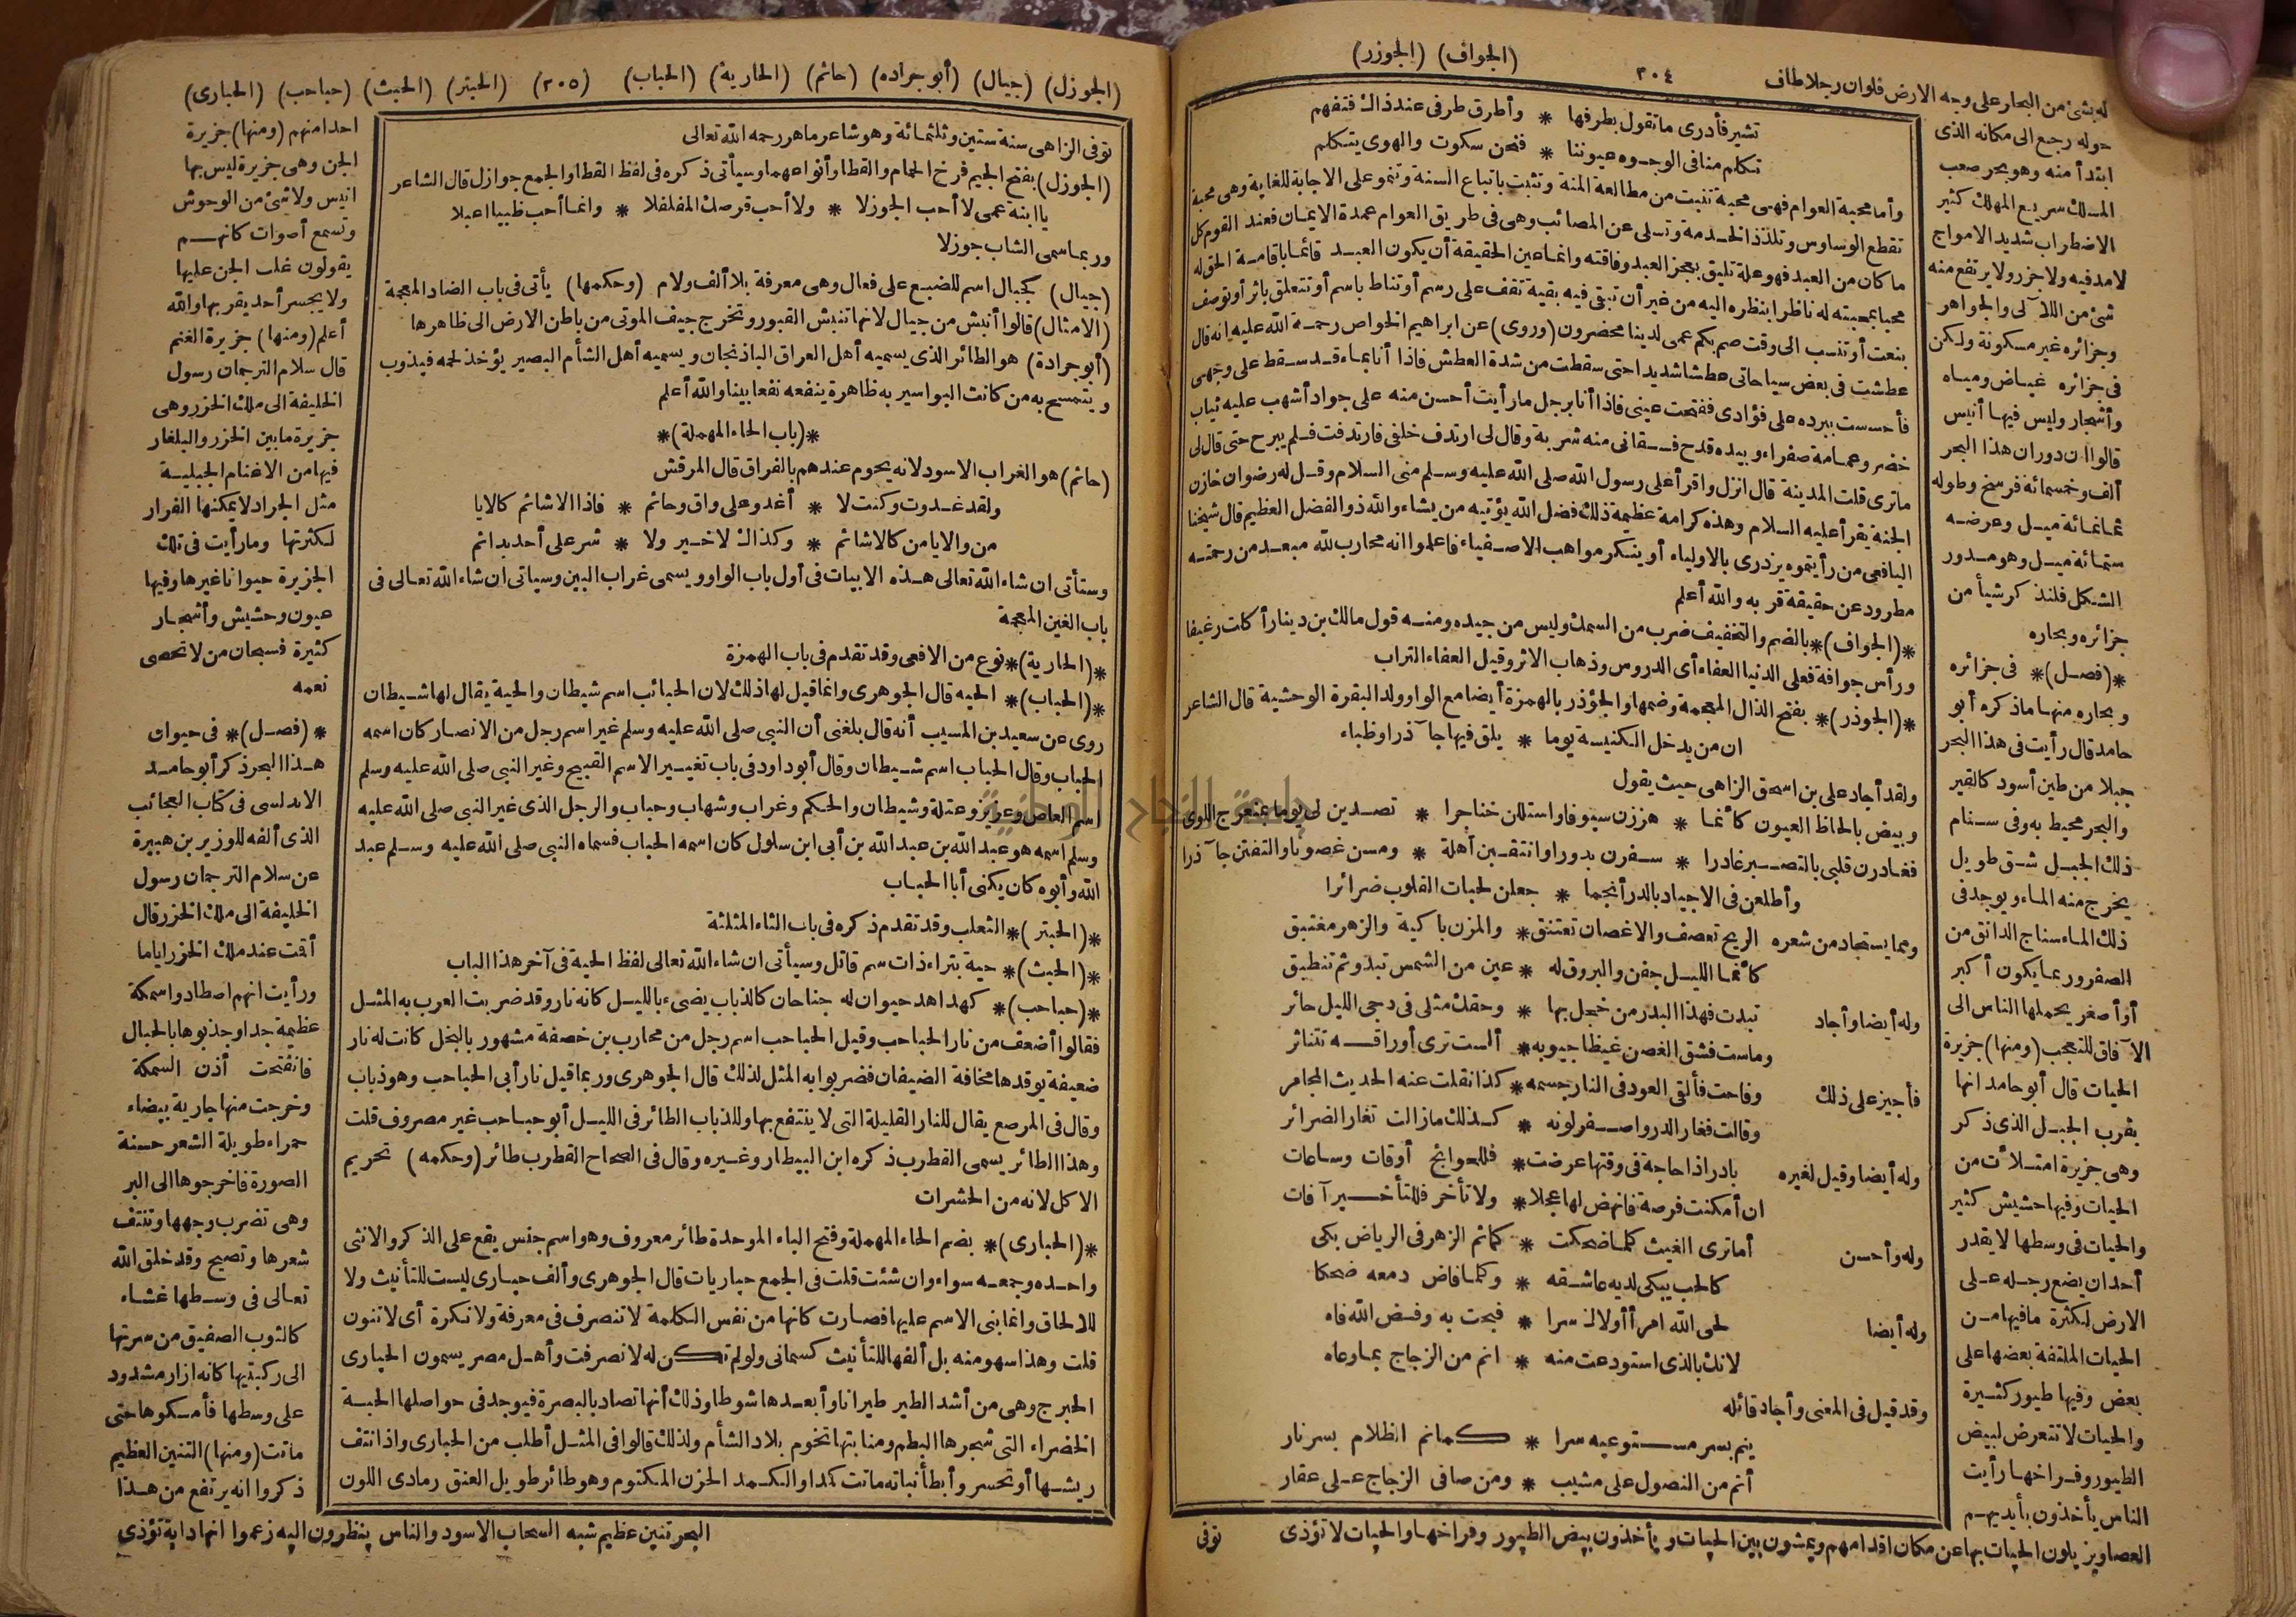 (الجواف) (الجوزر)
٣٠٤
تشير فأدرى ما تقول بطرفها * وأطرق طرفى عند ذاك فتفهم
تكلم منا فى الوجوه عيوننا * فنحن سكوت والهوى يتكلم
وأما محبة العوام فهى محبة تنبت من مطالعة المنة وتثبت باتباع السنة وتنمو على الاجابة للغاية وهى محبة
تقطع الوساوس وتلذذ الخدمة وتسلى عن المصائب وهى فى طريق العوام عمدة الايمان فعند القوم كل
ما كان من العبد فهو علة تليق بعجز العبد وفاقته وانما عين الحقيقة أن يكون العبد قائما باقامة الحق له
محبا بمحبته له ناظرا بنظره اليه من غير أن تبقى فيه بقية تقف على رسم أو تناط باسم أو تتعلق باثر أو توصف
بنعت أو تنسب الى وقت صم بكم عمى لدينا محضرون (وروى) عن ابراهيم الخواص رحمة الله عليه انه قال
عطشت فى بعض سياحاتى عطشا شديدا حتى سقطت من شدة العطش فاذا أنا بماء قد سقط على وجهى
فأحسست ببرده على فؤادى ففتحت عينى فاذا أنا برجل ما رأيت أحسن منه على جواد أشهب عليه ثياب
خضر وعمامة صفراء وبيده قدح فسقانى منه شربة وقال لى ارتدف خلفى فارتدفت فلم يبرح حتى قال لى
ما ترى قلت المدينة قال انزل واقرأ على رسول الله صلى الله عليه وسلم منى السلام وقل له رضوان خازن
الجنة يقرأ عليه السلام وهذه كرامة عظيمة ذلك فضل الله يؤتيه من يشاء والله ذو الفضل العظيم قال شيخنا
اليافعى من رأيتموه يزدرى بالاولياء أو ينكر مواهب الاصفياء فاعلموا انه محارب لله مبعد من رحمته
مطرود عن حقيقة قربه والله أعلم
*(الجواف)* بالضم والتخفيف ضرب من السمك وليس من جيده ومنه قول مالك بن دينار أكلت رغيفا
ورأس جوافة فعلى الدنيا العفاء أى الدروس وذهاب الاثر وقيل العفاء التراب
*(الجوذر)* بفتح الذال المعجمة وضمها والجؤذر بالهمزة أيضا مع الواو ولد البقرة الوحشية قال الشاعر
ان من يدخل الكنيسة يوما * يلق فيها جآذرا وظباء
ولقد أجاد على بن اسحق الزاهى حيث يقول
وبيض بالحاظ العيون كأنما * هززن سيوفا واستللن خناجرا * تصدين لى يوما بمنعرج اللوى
فغادرن قلبى بالتصبر غادرا * سفرن بدورا وانتقبن أهلة * ومسن غصونا والتفتن جآذرا
وأطلعن فى الاجياد بالدر أنجما * جعلن لحبات القلوب ضرائرا
ومما يستجاد من شعره الريح تعصف والاغصان تعتنق * والمزن باكية والزهر مغتبق
كأنما الليل جفن والبروق له * عين من الشمس تبدو ثم تنطبق
وله أيضا وأجاد تبدت فهذا البدر من خجل بها * وحقك مثلى فى دجى الليل حائر
وماست فشق الغصن غيظا جيوبه * ألست ترى أوراقه تتناثر
فأجيز على ذلك وفاحت فألقى العود فى النار جسمه * كذا نقلت عنه الحديث المجامر
وقالت فغار الدر واصفر لونه * كذلك مازالت تغار الضرائر
وله أيضا وقيل لغيره بادر اذا حاجة فى وقتها عرضت * فللحوائج أوقات وساعات
ان أمكنت فرصة فانهض لها عجلا * ولا تأخر فللتأخير آفات
وله وأحسن أما ترى الغيث كلما ضحكت * كمائم الزهر فى الرياض بكى
كالحب يبكى لديه عاشقه * وكلما فاض دمعه ضحكا
وله أيضا لحى الله امرأ أولاك سرا * فبحت به وفض الله فاه
لانك بالذى استودعت منه * انم من الزجاج بما وعاه
وقد قيل فى المعنى وأجاد قائله
ينم بسر مستوعيه سرا * كما نم الظلام بسر نار
أنم من النصول على مشيب * ومن صافى الزجاج على عقار
توفى
له بشئ من البحار على وجه الارض فلو ان رجلا طاف
حوله رجع الى مكانه الذى
ابتدأ منه وهو بحر صعب
المسلك سريع المهلك كثير
الاضطراب شديد الامواج
لا مد فيه ولا جزر ولا يرتفع منه
شئ من اللآلى والجواهر
وجزائره غير مسكونة ولكن
فى جزائره غياض ومياه
وأشجار وليس فيها أنيس
قالوا ان دوران هذا البحر
ألف وخمسمائة فرسخ وطوله
ثمانمائة ميل وعرضه
ستمائة ميل وهو مدور
الشكل فلنذكر شيأ من
جزائره وبحاره
*(فصل)* فى جزائره
وبحاره منها ما ذكره أبو
حامد قال رأيت فى هذا البحر
جبلا من طين أسود كالقير
والبحر محيط به وفى سنام
ذلك الجبل شق طويل
يخرج منه الماء ويوجد فى
ذلك الماء سناج الدانق من
الصفر وربما يكون أكبر
أو أصغر يحملها الناس الى
الآفاق للتعجب (ومنها) جزيرة
الحيات قال أبو حامد انها
بقرب الجبل الذى ذكر
وهى جزيرة امتلأت من
الحيات وفيها حشيش كثير
والحيات فى وسطها لا يقدر
أحد ان يضع رجله على
الارض لكثرة ما فيها من
الحيات الملتفة بعضها على
بعض وفيها طيور كثيرة
والحيات لا تتعرض لبيض
الطيور وفراخها رأيت
الناس يأخذون بأيديهم
العصا ويزيلون الحيات بها عن مكان اقدامهم ويمشون بين الحيات ويأخذون بيض الطيور وفراخها والحيات لا تؤذى
(الجوزل) (جيال) (أبو جراده) (حاتم) (الحارية) (الحباب) (٣٠٥) (الحبتر) (الحبث) (حباحب) (الحبارى)
توفى الزاهى سنة ستين وثلثمائة وهو شاعر ماهر رحمه الله تعالى
(الجوزل) بفتح الجيم فرخ الحمام والقطا وأنواعهما وسيأتى ذكره فى لفظ القطا والجمع جوازل قال الشاعر
يا ابنة عمى لا أحب الجوزلا * ولا أحب قرصك المفلفلا * وانما أحب ظبيا اعبلا
وربما سمى الشاب جوزلا
(جيال) كجبال اسم للضبع على فعال وهى معرفة بلا ألف ولام (وحكمها) يأتى فى باب الضاد المعجمة
(الامثال) قالوا أنبش من جيال لانها تنبش القبور وتخرج جيف الموتى من باطن الارض الى ظاهرها
(أبو جرادة) هو الطائر الذى يسميه أهل العراق الباذنجان ويسميه أهل الشأم البصير يؤخذ لحمه فيذوب
ويتمسح به من كانت البواسير به ظاهرة ينفعه نفعا بينا والله أعلم
*(باب الحاء المهملة)*
(حاتم) هو الغراب الاسود لانه يحوم عندهم بالفراق قال المرقش
ولقد غدوت وكنت لا * أغدو على واق وحاتم * فاذا الاشائم كالايا
من والايامن كالاشائم * وكذاك لا خير ولا * شر على أحد بدائم
وستأتى ان شاء الله تعالى هذه الابيات فى أول باب الواو ويسمى غراب البين وسيأتى ان شاء الله تعالى فى
باب الغين المعجمة
*(الحارية)* نوع من الافعى وقد تقدم فى باب الهمزة
*(الحباب)* الحيه قال الجوهرى وانما قيل لها ذلك لان الحبائب اسم شيطان والحية يقال لها شيطان
روى عن سعيد بن المسيب أنه قال بلغنى أن النبى صلى الله عليه وسلم غير اسم رجل من الانصار كان اسمه
الحباب وقال الحباب اسم شيطان وقال أبو داود فى باب تغيير الاسم القبيح وغير النبى صلى الله عليه وسلم
اسم العاص وعزيز وعتلة وشيطان والحكم وغراب وشهاب وحباب والرجل الذى غير النبى صلى الله عليه
وسلم اسمه هو عبد الله بن عبد الله بن أبى ابن سلول كان اسمه الحباب فسماه النبى صلى الله عليه وسلم عبد
الله وأبوه كان يكنى أبا الحباب
*(الحبتر)* الثعلب وقد تقدم ذكره فى باب الثاء المثلثة
*(الحبث)* حية بتراء ذات سم قاتل وسيأتى ان شاء الله تعالى لفظ الحية فى آخر هذا الباب
*(حباحب)* كهداهد حيوان له جناحان كالذباب يضىء بالليل كانه نار وقد ضربت العرب به المثل
فقالوا أضعف من نار الحباحب وقيل الحباحب اسم رجل من محارب بن خصفة مشهور بالبخل كانت له نار
ضعيفة يوقدها مخافة الضيفان فضربوا به المثل لذلك قال الجوهرى وربما قيل نار أبى الحباحب وهو ذباب
وقال فى المرصع يقال للنار القليلة التى لا ينتفع بها وللذباب الطائر فى الليل أبو حباحب غير مصروف قلت
وهذا الطائر يسمى القطرب ذكره ابن البيطار وغيره وقال فى الصحاح القطرب طائر (وحكمه) تحريم
الاكل لانه من الحشرات
*(الحبارى)* بضم الحاء المهملة وفتح الباء الموحدة طائر معروف وهو اسم جنس يقع على الذكر والانثى
واحده وجمعه سواء وان شئت قلت فى الجمع حباريات قال الجوهرى وألف حبارى ليست للتأنيث ولا
للالحاق وانما بنى الاسم عليها فصارت كانها من نفس الكلمة لا تنصرف فى معرفة ولا نكرة أى لا تنون
قلت وهذا سهو منه بل ألفها للتأنيث كسمانى ولو لم تكن له لانصرفت وأهل مصر يسمون الحبارى
الحبرج وهى من أشد الطير طيرانا وأبعدها شوطا وذلك أنها تصاد بالبصرة فيوجد فى حواصلها الحبة
الخضراء التى شجرها البطم ومنابتها تخوم بلاد الشأم ولذلك قالوا فى المثل أطلب من الحبارى واذا نتف
ريشها أو تحسر وأبطأ نباته ماتت كمدا والكمد الحزن المكتوم وهو طائر طويل العنق رمادى اللون
احد امنهم (ومنها) جزيرة
الجن وهى جزيرة ليس بها
انيس ولا شئ من الوحوش
وتسمع أصوات كانهم
يقولون غلب الجن عليها
ولا يجسر أحد يقربها والله
أعلم (ومنها) جزيرة الغنم
قال سلام الترجمان رسول
الخليفة الى ملك الخزر وهى
جزيرة ما بين الخزر والبلغار
فيها من الاغنام الجبلية
مثل الجراد لا يمكنها الفرار
لكثرتها وما رأيت فى تلك
الجزيرة حيوانا غيرها وفيها
عيون وحشيش وأشجار
كثيرة فسبحان من لا تحصى
نعمه
*(فصل)* فى حيوان
هذا البحر ذكر أبو حامد
الاندلسى فى كتاب العجائب
الذى ألفه للوزير بن هبيرة
عن سلام الترجمان رسول
الخليفة الى ملك الخزر قال
أقت عند ملك الخزر اياما
ورأيت انهم اصطادوا سمكة
عظيمة جدا وجذبوها بالحبال
فانفتحت أذن السمكة
وخرجت منها جارية بيضاء
حمراء طويلة الشعر حسنة
الصورة فاخرجوها الى البر
وهى تضرب وجهها وتنتف
شعرها وتصيح وقد خلق الله
تعالى فى وسطها غشاء
كالثوب الصفيق من سرتها
الى ركبتيها كانه ازار مشدود
على وسطها فأمسكوها حتى
ماتت (ومنها) التنين العظيم
ذكروا انه يرتفع من هذا
البحر تنين عظيم شبه السحاب الاسود والناس ينظرون اليه زعموا انها دابة تؤذى